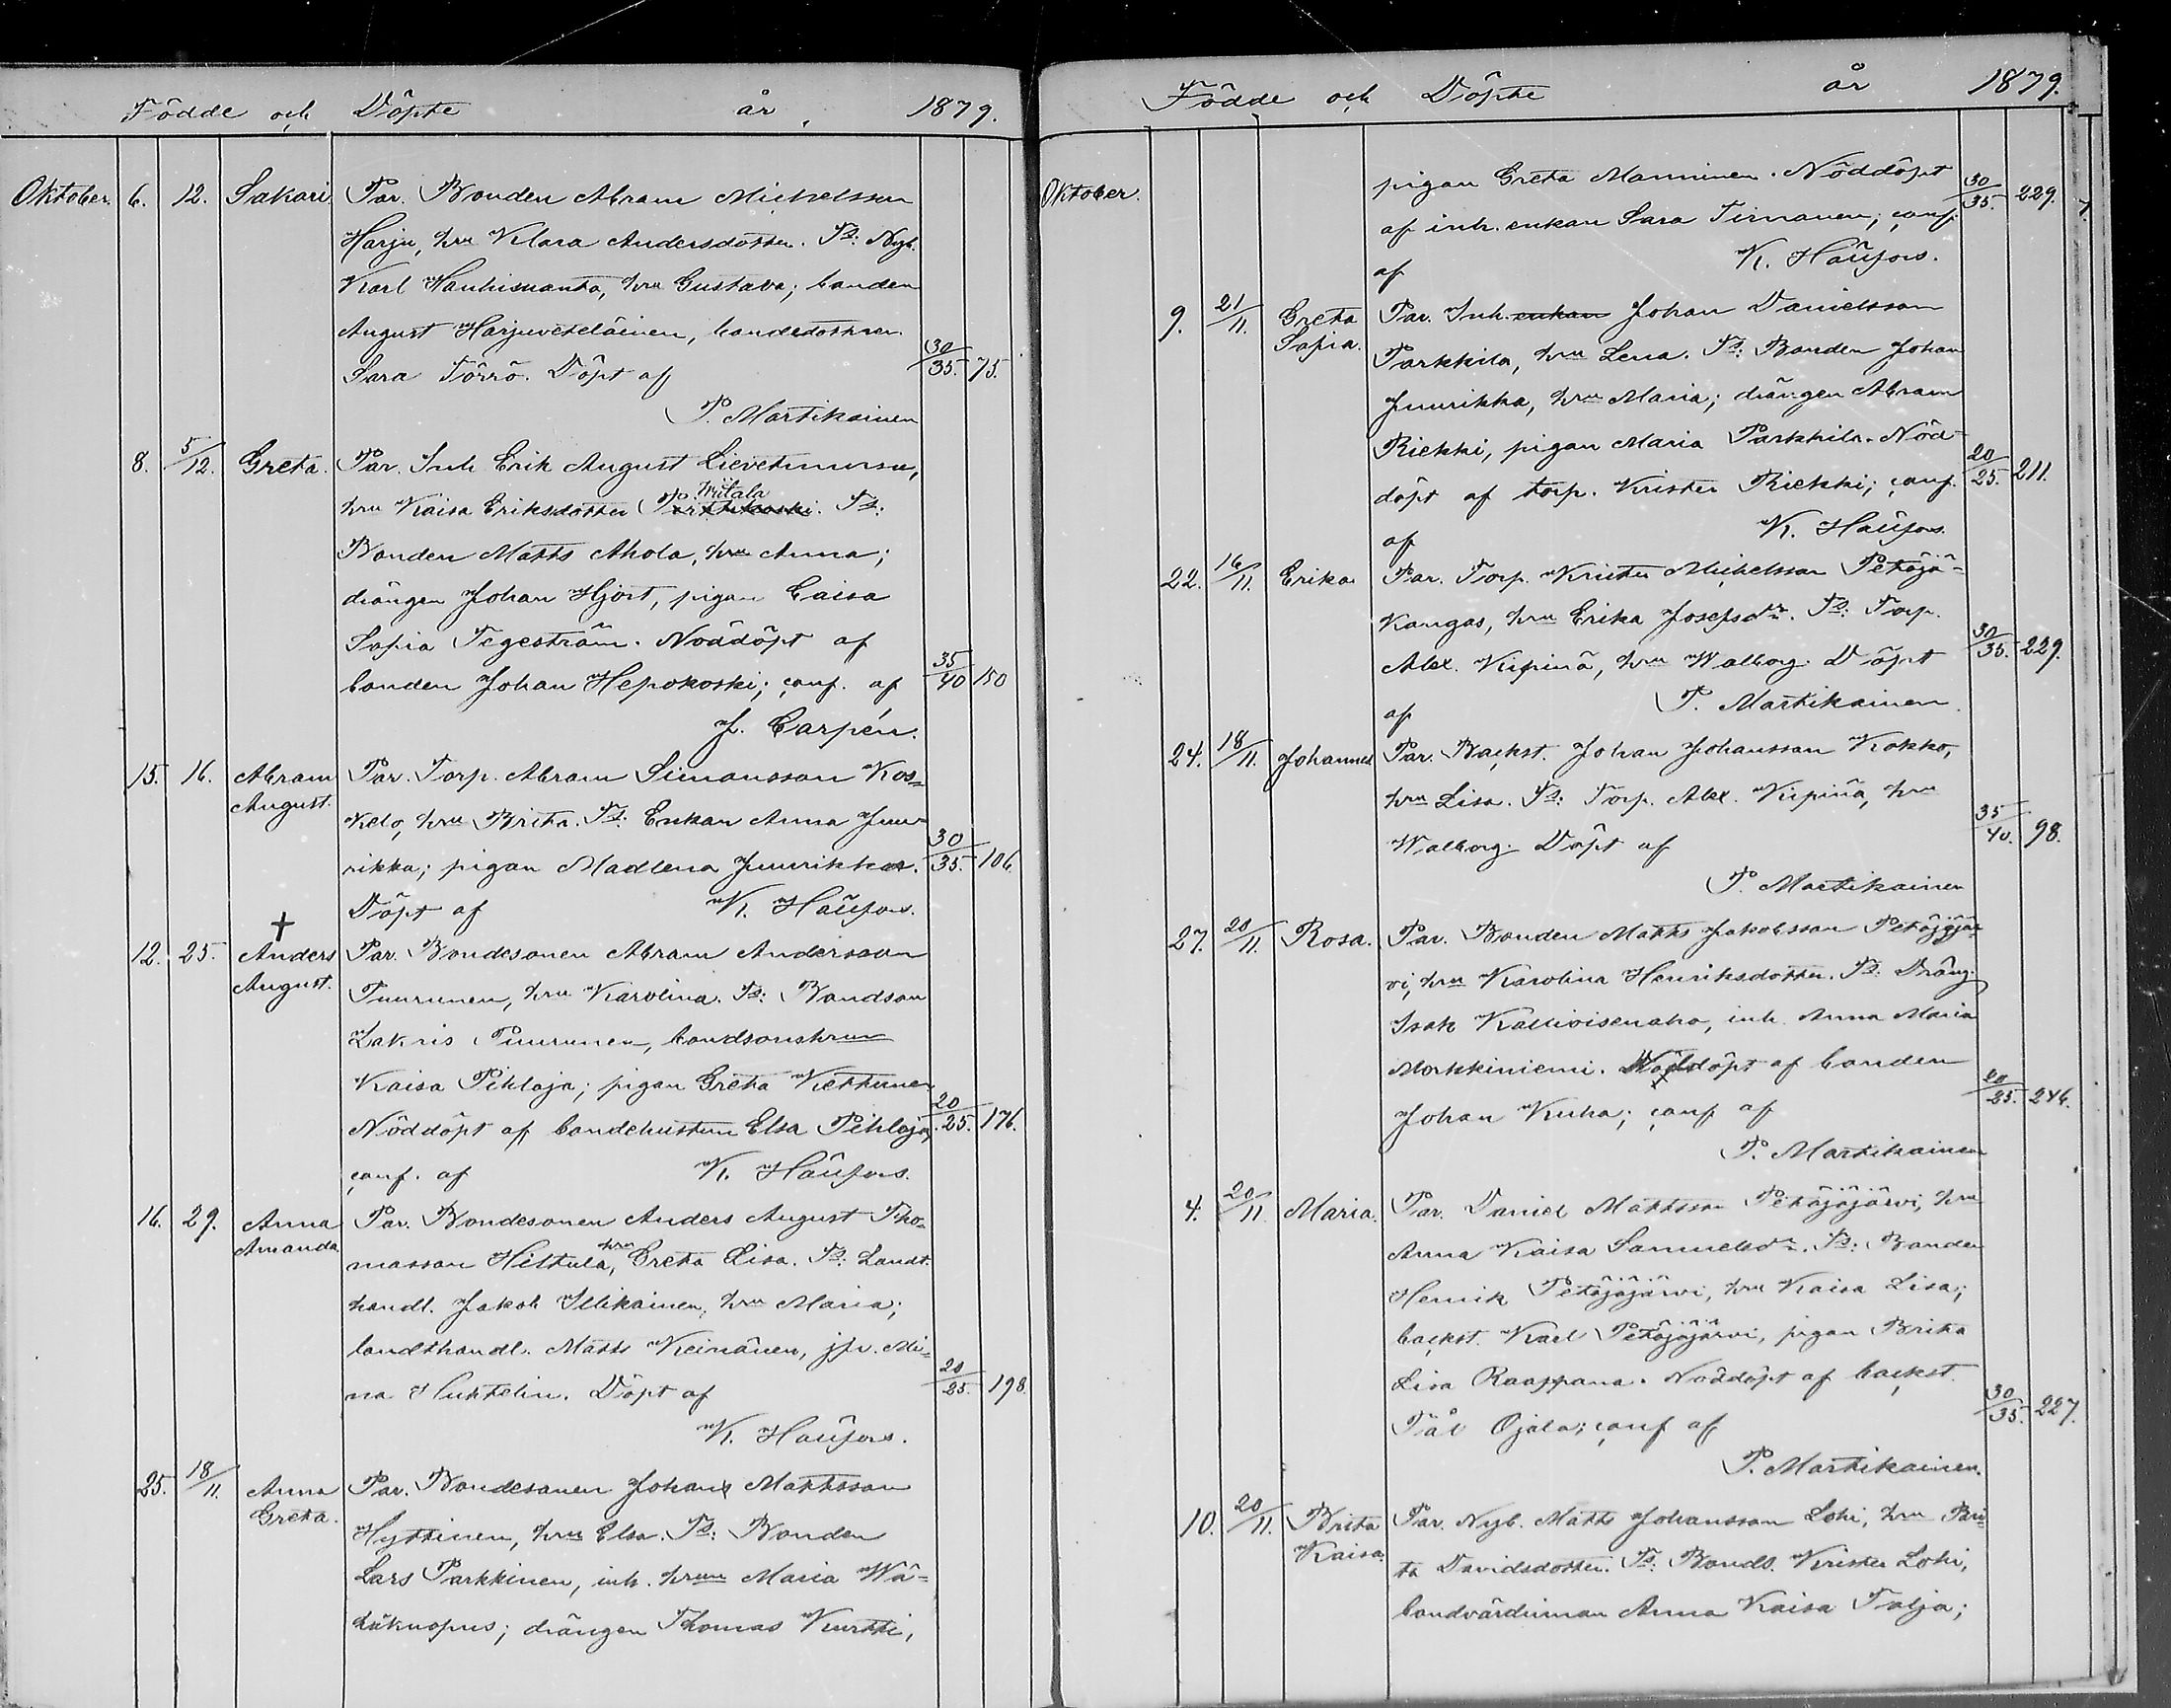 Födde och Döpte år 1879.
Oktober. 6. 12. Sakari Par. Bonden Abram Michelsson
Harju, hru Klara Andersdotter. Ts: Nyb.
Karl Hauhisuanto, hru Gustava; bonden
August Harjuveteläinen, bondedottren
Sara Törrö. Döpt af 30/35. 75.
P. Martikainen
8. 5/12. Greta. Par. Inh Erik August Lievetmursu,
hru Kaisa Eriksdotter Witala. Ts:
Bonden Matts Ahola, hru Anna;
drängen Johan Hjort, pigan Caisa
Sofia Tegeström. Nöddöpt af
bonden Johan Hepokoski; conf. af 35/40 150
J. Carpén.
15. 16. Abram August. Par. Torp. Abram Simonsson Kos=
kelo, hru Brita. Ts: Enkan Anna Juu=
rikka; pigan Madlena Juurikka. 30/35. 106.
Döpt af K. Häufors.
12. 25. † Anders August. Par. Bondesonen Abram Andersson
Tuurunen, hru Karolina. Ts: Bondson
Zakris Tuurunen, bondsonshrun
Kaisa Pihlaja; pigan Greta Kettunen
Nöddöpt af bondehustrun Elsa Pihlaja, 20/25. 176.
conf. af K. Häufors.
16. 29. Anna Amanda Par. Bondesonen Anders August Tho=
masson Hiltula, hru Greta Lisa. Ts: Landt.
handl. Jakob Illikainen, hru Maria;
landthandl. Matts Keinänen, jfr. Mi=
na Huktelin. Döpt af 20/25. 198.
K. Häufors.
25. 18/11. Anna Greta. Par. Bondesonen Johan Mattsson
Hyttinen, hru Elsa. Ts: Bonden
Lars Parkkinen, inh. hrun Maria Wä=
häknopus; drängen Thomas Kurtti,
Födde och Döpte år 1879.
Oktober. pigan Greta Manninen. Nöddöpt 30/35. 229.
af inh. enkan Sara Tirnanen; conf.
af K. Häufors.
9. 21/11. Greta Sofia. Par. Inh. enkan Johan Danielsson
Parkkila, hru Lena. Ts: Bonden Johan
Juurikka, hru Maria; drängen Abram
Riekki, pigan Maria Parkkila. Nöd=
döpt af torp. Krister Riekki; conf. 20/25. 211.
af K. Häufors.
22. 16/11. Erika Par. Torp. Krister Michelsson Petäjä=
kangas, hru Erika Josefsdr. Ts: Torp.
Alex. Kipinä, hru Walborg. Döpt 30/35. 229.
af P. Martikainen.
24. 18/11. Johannes Par. Backst. Johan Johansson Kokko,
hru Lisa. Ts: Torp. Alex. Kipinä, hru
Walborg. Döpt af 35/40. 98.
P. Martikainen
27. 20/11. Rosa. Par. Bonden Matts Jakobsson Petäjäjär=
vi, hru Karolina Henriksdotter. Ts: Dräng.
Isak Kallioisenaho, inh. Anna Maria
Morkkiniemi. Nöddöpt af bonden
Johan Kuha; conf af 20/25. 246.
P. Martikainen
4. 20/11. Maria. Par. Daniel Mattsson Petäjäjärvi, hru
Anna Kaisa Samuelsdr. Ts: Bonden
Henrik Petäjäjärvi, hru Kaisa Lisa;
backst. Karl Petäjäjärvi, pigan Brita
Lisa Raappana. Nöddöpt af backst.
Pål Ojala; conf af 30/35. 227.
P. Martikainen.
10. 20/11. Brita Kaisa. Par. Nyb. Matts Johansson Lohi, hru Bri=
ta Davidsdotter. Ts: Bonds. Krister Lohi,
bondvärdinnan Anna Kaisa Talja;